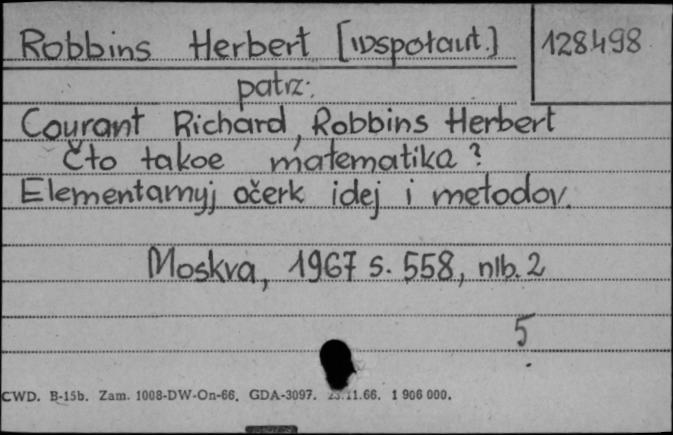 Robbins Herbert [wspołaut.] 128498
patrz:
Courant Richard, Robbins Herbert
Čto takoe matematika?
Elementarnyj očerk idej i metodov.
Moskva, 1967 s. 558, nlb. 2
5
CWD. B-15b. Zam. 1008-DW-On-66. GDA-3097. 23.11.66. 1 906 000.